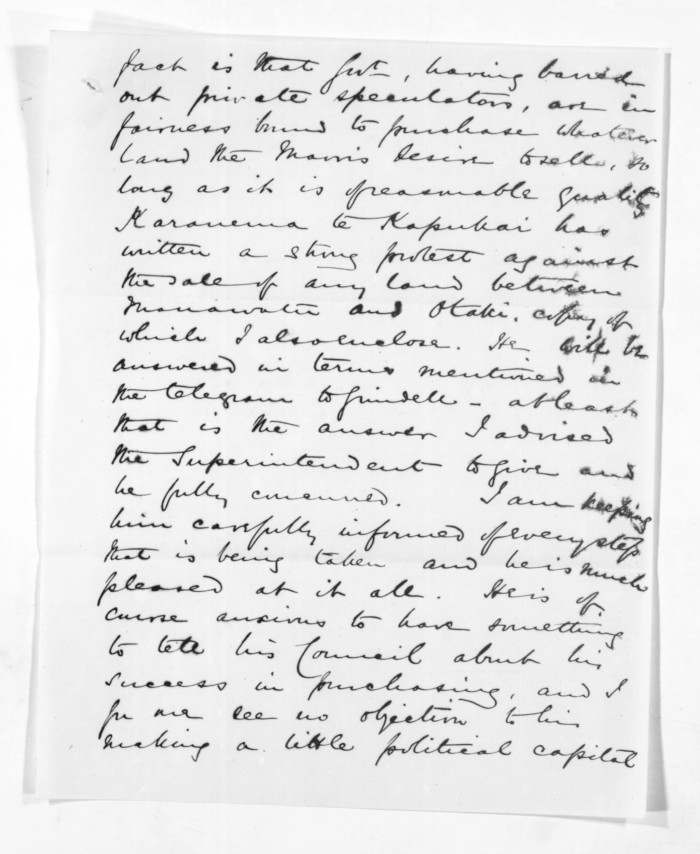 fact is that Govt, having barred
out private speculators, are in
fairness bound to purchase whatever
land the Maoris desire to sell, so
long as it is of reasonable quality
Karanema te Kapukai has
written a strong protest against
the sale of any land between
Manawatu and Otaki, copy of
which I also enclose. He will be
answered in terms mentioned in
the telegram to Grindell – at least
that is the answer I advised
the Superintendent to give and
he fully concurred. I am keeping
him carefully informed of every step
that is being taken and he is much
pleased at it all. He is of
course anxious to have something
to tell his Council about his
success in purchasing, and I
for one see no objection to his
making a little political capital